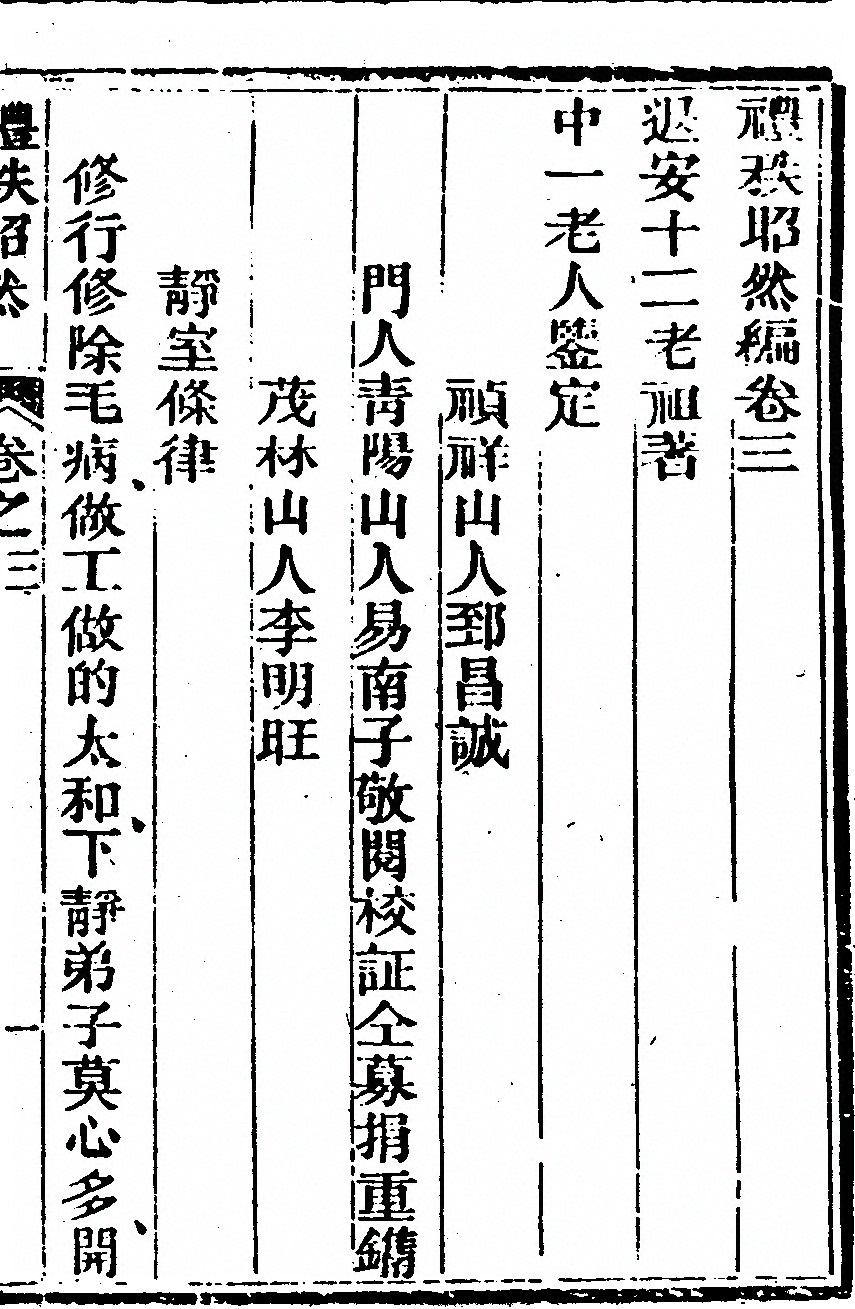 禮秩昭然編卷三
退安十二老祖著
中一老人鑒定
禎祥山人郅昌誠
門人青陽山人易南子敬閱校証仝募捐重鐫
茂林山人李明旺
靜室條律
修行修除毛病、做工做的太和、下靜弟子莫心多、開
禮秩昭然 卷之三 一